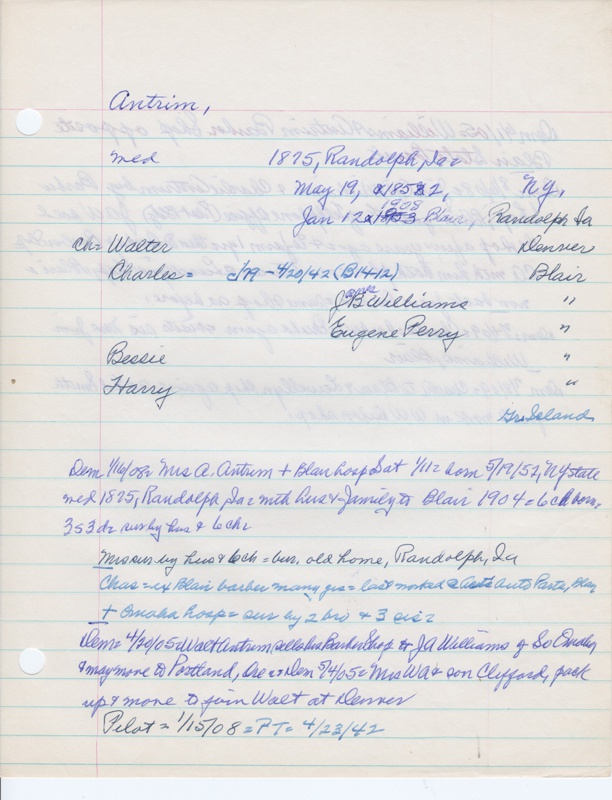 Antrim,
med 1875, Randolph, Ia=
May 19, 1852, NY,
Jan 12 1908 Blair, Randolph Ia
ch= Walter Denver
Charles = -4/20/42 (B1412) Blair
Williams "
Eugene Perry "
Bessie "
Harry "
Gr Island
Dem 1/16/08= Mrs A. Antrim + Blair hosp Sat 1/11= born 5/19/52, NY state
med 1875, Randolph, Ia= with hus & family to Blair 1904= 6 ch born,
3s 3d= sur by hus & 6 ch=
Mrs sur by hus & 6 ch = bur. old home, Randolph, Ia
Chas = ex Blair barber many yrs = last worked Auto Parts, Blair
+ Omaha hosp = sur by 2 bro & 3 sis=
Dem= 4/20/05= Walt Antrim sells his Barber Shop to JA Williams of So Omaha
& may move to Portland, Ore = Dem 5/4/05= Mrs WA & son Clifford, pack
up & move to join Walt at Denver
Pilot = 1/15/08 = PT= 4/23/42